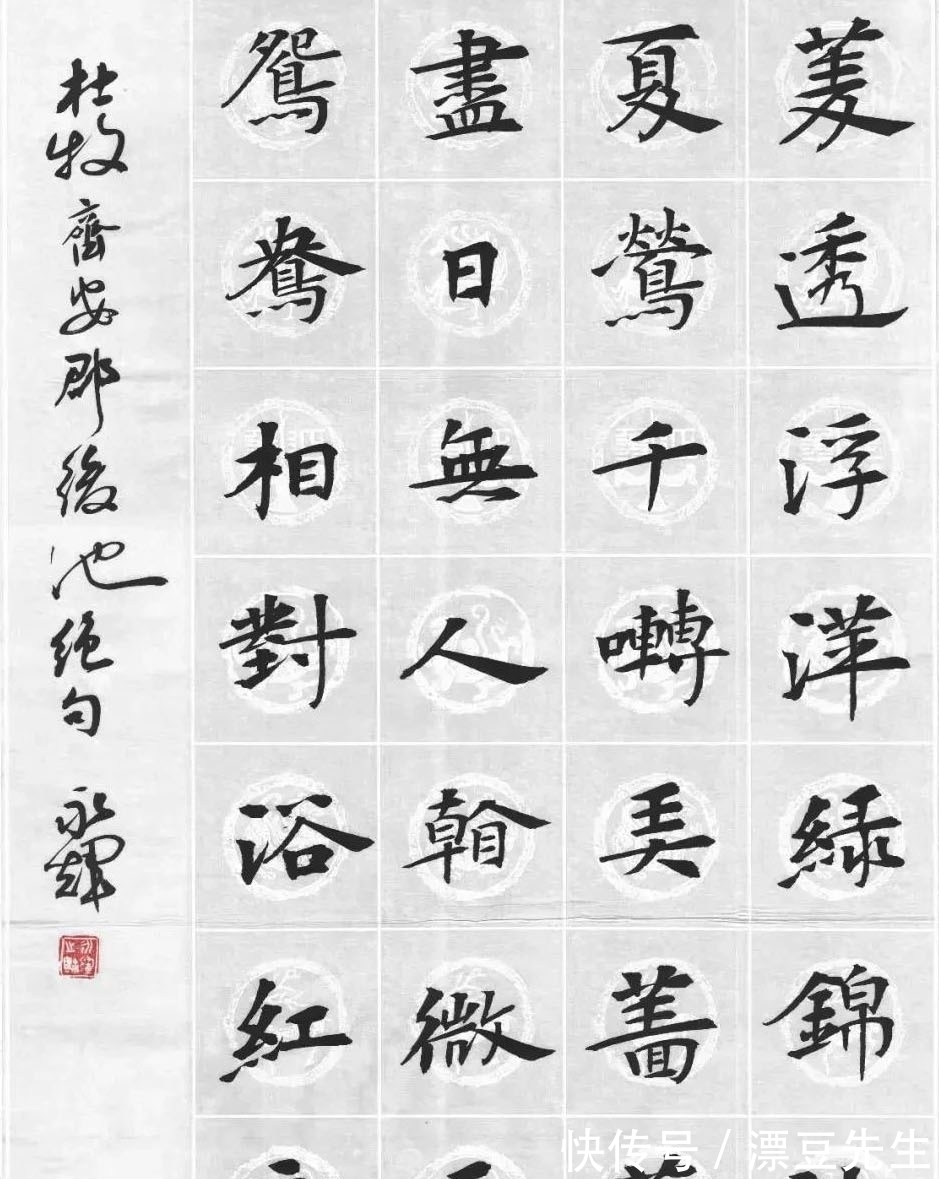 菱透浮萍緑錦
夏鶯千囀弄薔
盡日無人看微
鴛鴦相對浴紅
杜牧齊安郡後池絕句 永輝
快传号 / 漂豆先生